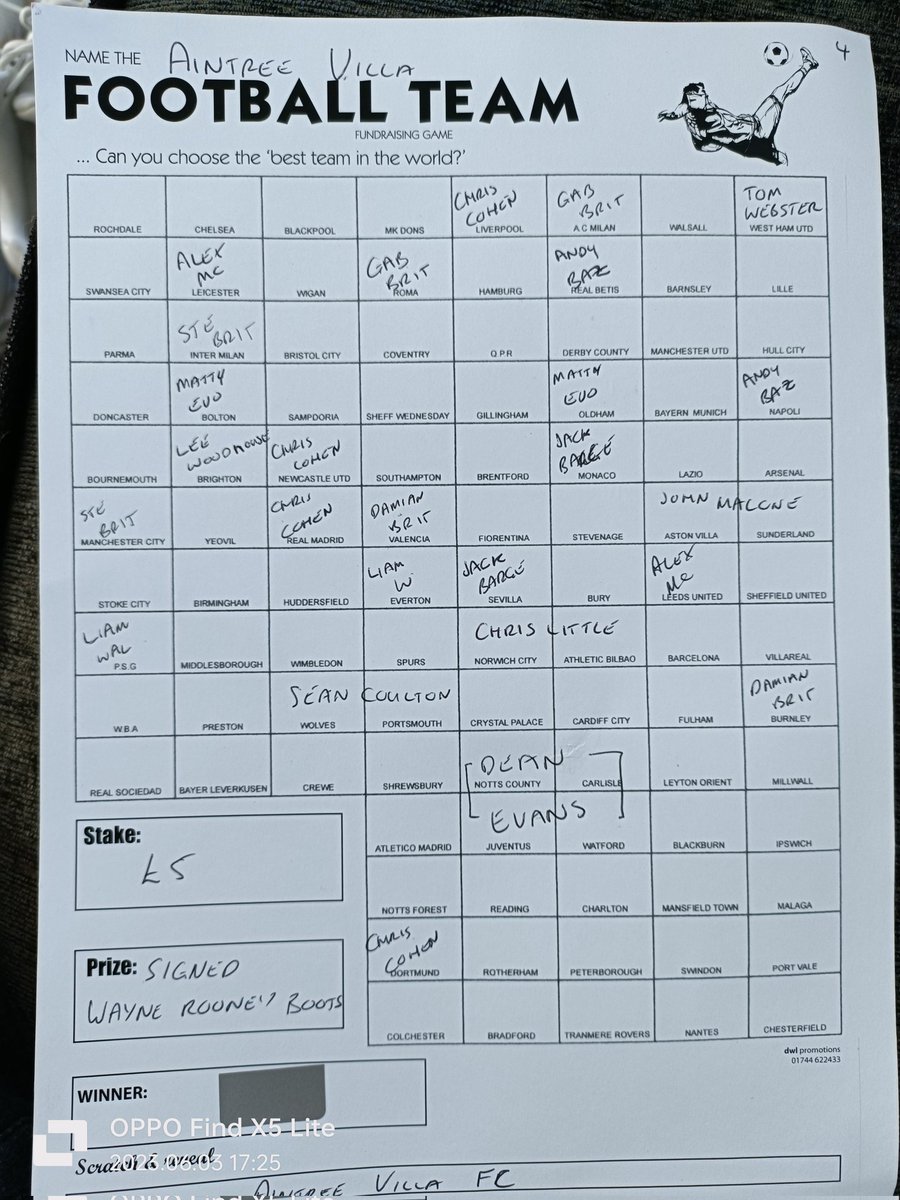 NAME THE AINTREE VILLA
4
FOOTBALL TEAM
FUNDRAISING GAME
... Can you choose the 'best team in the world?'
CHRIS COHEN GAB BRIT TOM WEBSTER
ROCHDALE CHELSEA BLACKPOOL MK DONS LIVERPOOL A C MILAN WALSALL WEST HAM UTD
ALEX MC GAB BRIT ANDY BAZ
SWANSEA CITY LEICESTER WIGAN ROMA HAMBURG REAL BETIS BARNSLEY LILLE
STE BRIT
PARMA INTER MILAN BRISTOL CITY COVENTRY Q.P.R DERBY COUNTY MANCHESTER UTD HULL CITY
MATTY EVO MATTY EVO ANDY BAZ
DONCASTER BOLTON SAMPDORIA SHEFF WEDNESDAY GILLINGHAM OLDHAM BAYERN MUNICH NAPOLI
LEE CHRIS COHEN JACK BARGE
BOURNEMOUTH BRIGHTON NEWCASTLE UTD SOUTHAMPTON BRENTFORD MONACO LAZIO ARSENAL
STE BRIT CHRIS COHEN DAMIAN BRIT JOHN MALONE
MANCHESTER CITY YEOVIL REAL MADRID VALENCIA FIORENTINA STEVENAGE ASTON VILLA SUNDERLAND
LIAM W JACK BARGE ALEX MC
STOKE CITY BIRMINGHAM HUDDERSFIELD EVERTON SEVILLA BURY LEEDS UNITED SHEFFIELD UNITED
LIAM WAL CHRIS LITTLE
P.S.G MIDDLESBOROUGH WIMBLEDON SPURS NORWICH CITY ATHLETIC BILBAO BARCELONA VILLAREAL
SEAN COULTON DAMIAN BRIT
W.B.A PRESTON WOLVES PORTSMOUTH CRYSTAL PALACE CARDIFF CITY FULHAM BURNLEY
DEAN
REAL SOCIEDAD BAYER LEVERKUSEN CREWE SHREWSBURY NOTTS COUNTY CARLISLE LEYTON ORIENT MILLWALL
EVANS
ATLETICO MADRID JUVENTUS WATFORD BLACKBURN IPSWICH
NOTTS FOREST READING CHARLTON MANSFIELD TOWN MALAGA
CHRIS COHEN
DORTMUND ROTHERHAM PETERBOROUGH SWINDON PORT VALE
COLCHESTER BRADFORD TRANMERE ROVERS NANTES CHESTERFIELD
Stake:
£5
Prize: SIGNED
WAYNE ROONEY BOOTS
dwl promotions
01744 622433
WINNER:
OPPO Find X5 Lite
2023.06.03 17:25
Scratch & reveal
AINTREE VILLA FC